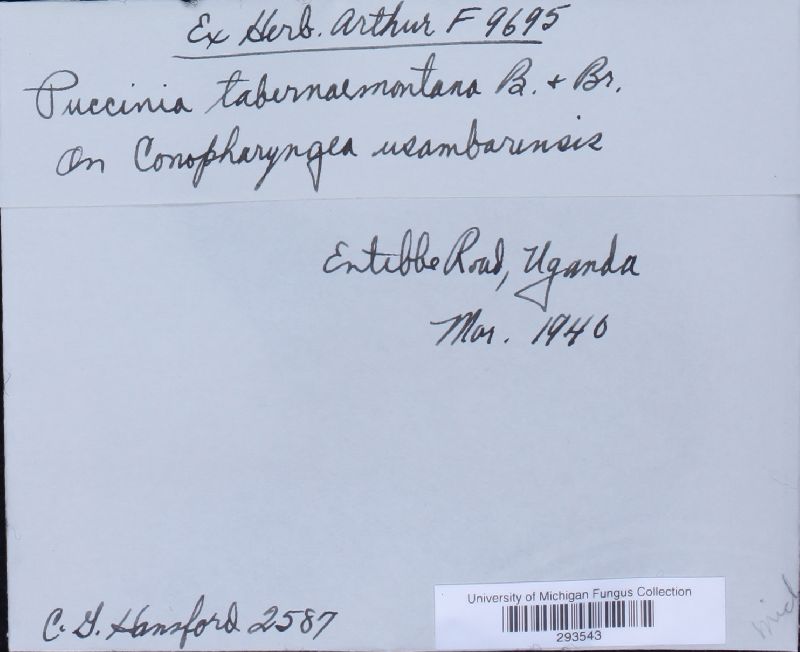 Ex Herb. Arthur F 9695
Puccinia tabernaemontana B. + Br.
On Conopharyngea usambarensis
Entebbe Road, Uganda
Mar. 1940
C. G. Hansford 2587
University of Michigan Fungus Collection
293543
mich